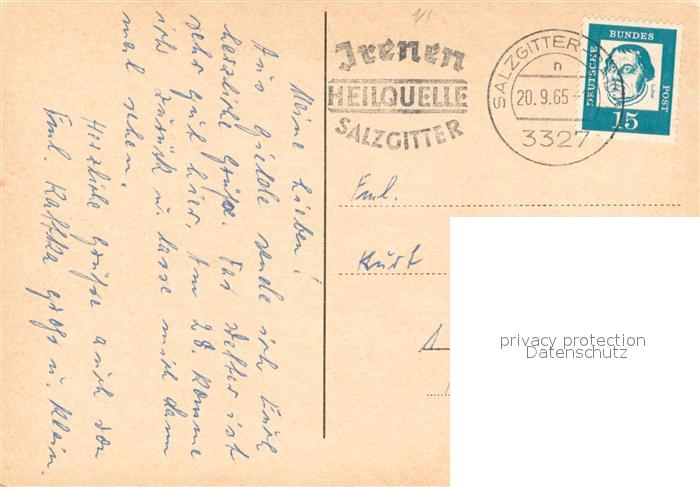 Meine Lieben!
Aus Gielde sende ich Euch
herzliche Grüße. Das Wetter ist
sehr gut hier. Am 28. komme
ich zurück u. lasse mich dann
mal sehen.
Herzliche Grüße auch von
Faml. Kattka groß u. klein.
Irenen
HEILQUELLE
SALZGITTER
SALZGITTER-
n
20.9.65-
3327
DEUTSCHE
BUNDES
POST
15
Faml.
Kurt
privacy protection
Datenschutz